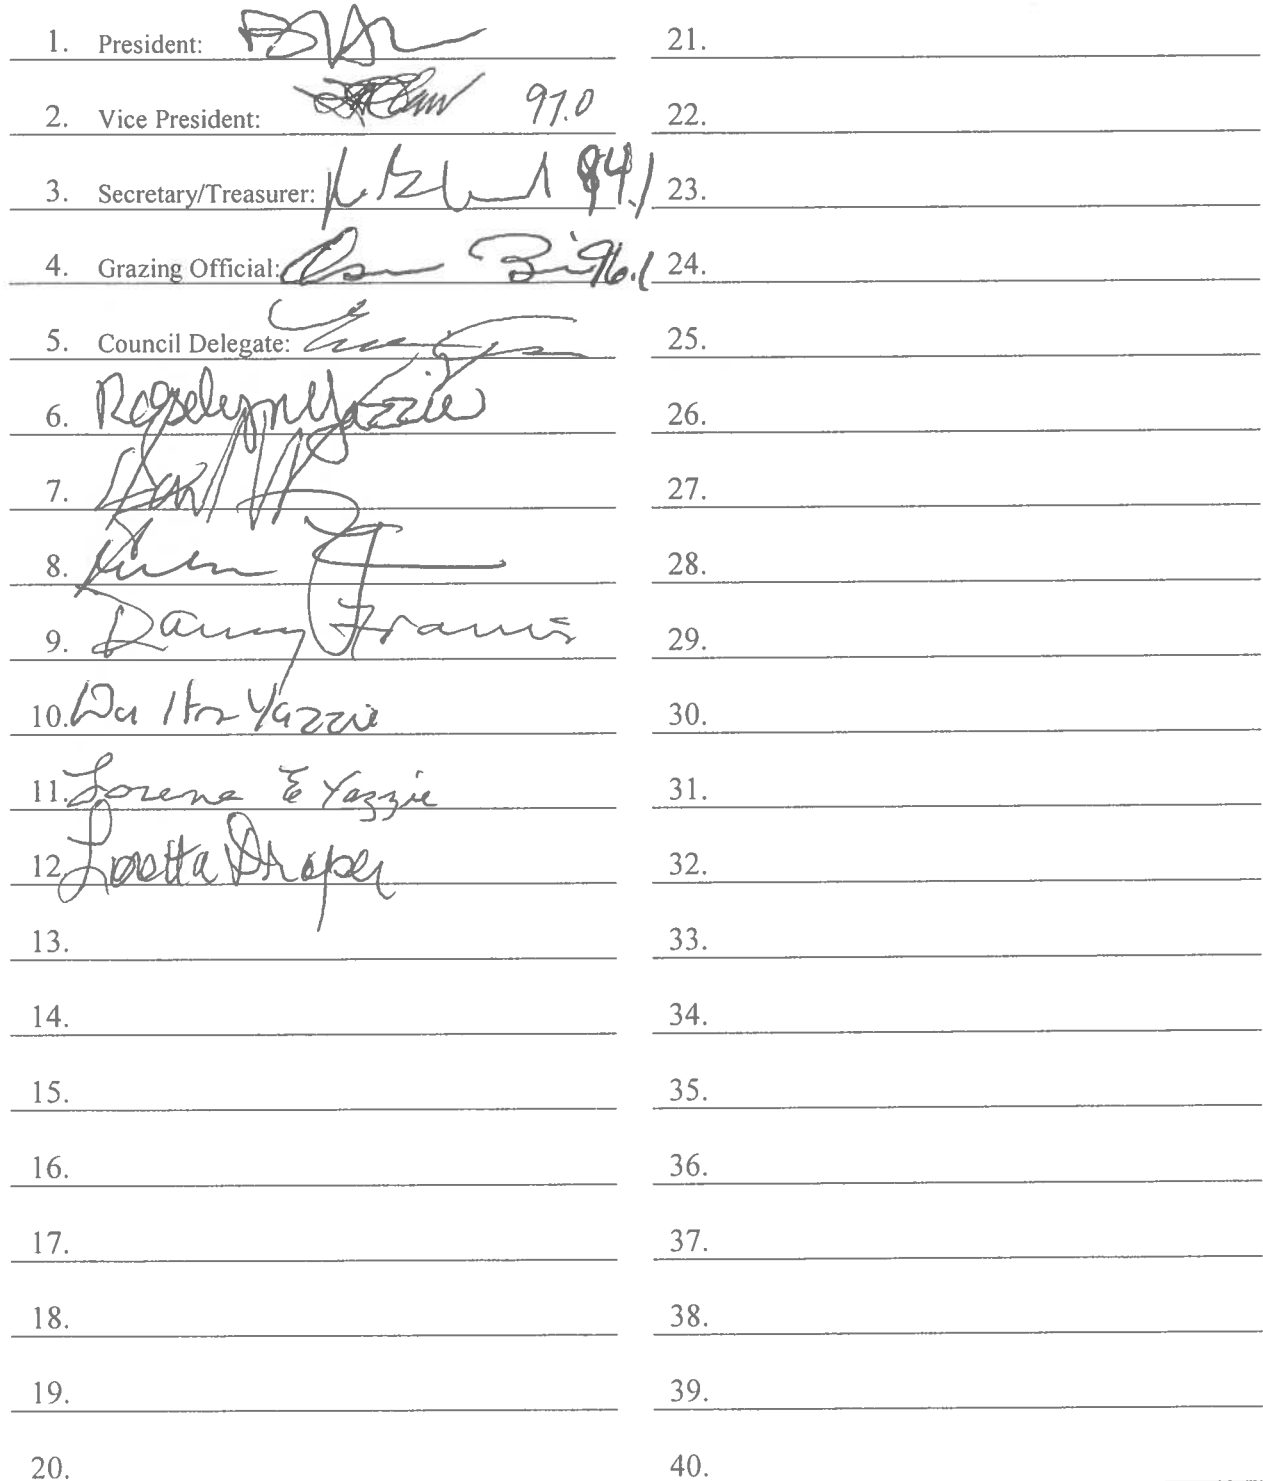 1. President:
2. Vice President: 97.0
3. Secretary/Treasurer: 84.1
4. Grazing Official: 96.1
5. Council Delegate:
6. Roselynn Yazzie
7.
8.
9. Danny Francis
10. Walter Yazzie
11. Lorena E Yazzie
12. Loretta Draper
13.
14.
15.
16.
17.
18.
19.
20.
21.
22.
23.
24.
25.
26.
27.
28.
29.
30.
31.
32.
33.
34.
35.
36.
37.
38.
39.
40.